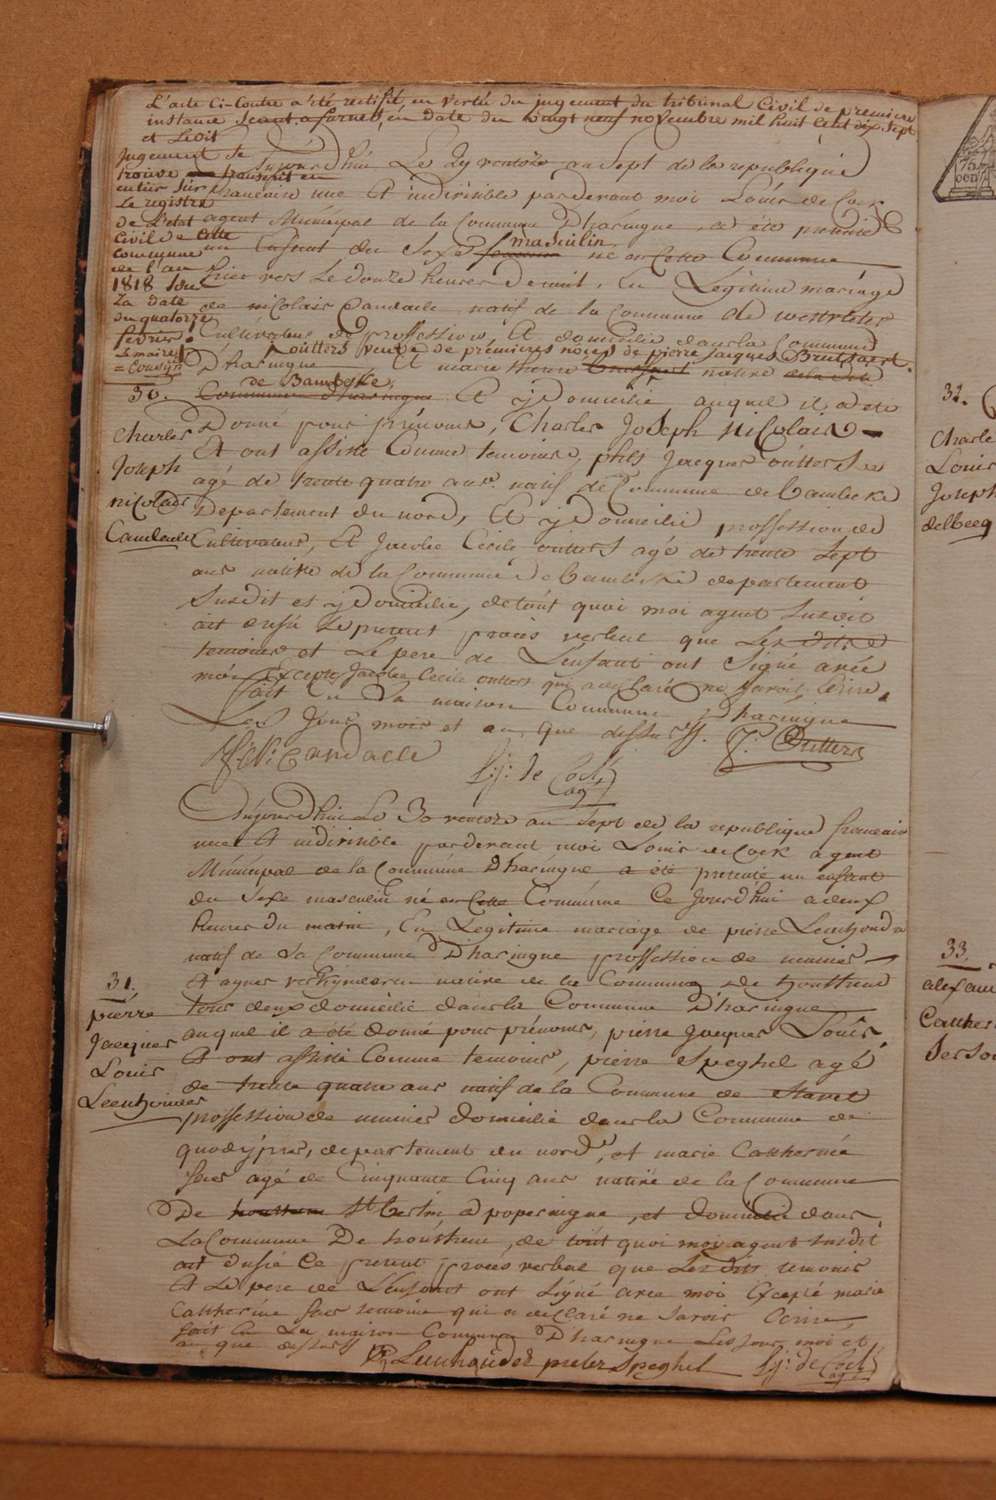 L'acte Ci-Contre a été rectifié, en vertu du jugement du tribunal Civil de premiere
instance Séant a furnes, en date du vingt neuf novembre mil huit cent dix Sept
et Ledit
jugement Se
trouve transcrit en
entier Sur
Le registre
de L'etat
Civil de cette
commune
de l'an
1818 Sou
La date
du quatorze
fevrier.
Le maire
= Cousyn
30.
Charles
Joseph
nicolais
Caudaele
Aujourd'hui Le 29 ventose an Sept de la republique
francaise une Et indivisible pardevant moi Louis de Cock
agent Municipal de la Commune D'haringue, a été presenté
un Enfant du Sexe masculin né en Cette Commune
hier vers Le douze heures de nuit, En Légitime mariage
de nicolais Caudaele natif de la Commune de westvleter
Cultivateur de profession, Et domicilié dans la Commune
outters veuve de premieres noces de pierre Jacques
D'haringue Et marie therese native
de Bambeke,
Commune D'haringue Et y Domicilié auquel il a été
Donné pour prénoms, Charles Joseph nicolais
Et ont assisté Comme temoins, phls Jacques outters
agé de trente quatre ans natif de Commune de bambeke
Departement du nord, Et y Domicilié proffession de
Cultivateur, Et Jacobe Cécile outters agé de trente Sept
ans native de la Commune De bambeke departement
Susdit et y domicilie, de tout quoi moi agent Susdit
ait dressé Le present procès verbal que Les dits
temoins et Le pere de L'enfant ont Signé avec
moi Excepte Jacobe Cecile outters qui a declaré ne Savoir Ecrire.
fait En La maison Commune D'haringue
Les Jour mois et an que dessus
Caudaele
L: j: de Cock
ag
P: Outters
Aujourd'hui Le 30 ventose an Sept de la republique francaise
une Et indivisible pardevant moi Louis de Cock agent
Municipal de la Commune D'haringue a été presenté un enfant
du Sexe masculin né en Cette Commune Ce Jourd'hui a deux
heures du matin, En Légitime mariage de pierre Leenhouder
natif de La Commune D'haringue proffession de
Et agnes native de la Commune de houtkerke
tous deux domicilié dans la Commune D'haringue
31.
pierre
Jacques
Louis
Leenhouder
auquel il a été donné pour prénoms, pierre Jacques Louis,
Et ont assisté Comme temoins, pierre Speghel agé
de trente quatre ans natif de la Commune de Stavel
proffession de domicilié dans la Commune de
quaedypres, departement du nord, et marie Catherine
agé de Cinquante Cinq ans native de la Commune
De St Bertin a poperingue, et domicilie dans
La Commune De , de tout quoi moi agent Susdit
ait dressé Ce present procès verbal que Les dits temoins
Et Le pere de L'enfant ont signé avec moi Excepté marie
Catherine temoine qui a declaré ne Savoir Ecrire,
fait En La maison Commune D'haringue Les Jour, moi et
an que dessus
Leenhouder pieter Speghel L: j: de Cock
ag
32.
Charle
Louis
Joseph
delbecq
33.
alexan
Cather